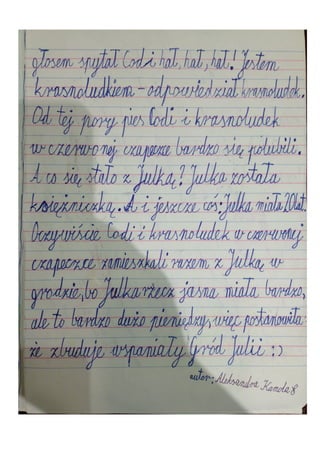 głosem spytał Codi hał, hał, hał! Jestem
krasnoludkiem - odpowiedział krasnoludek.
Od tej pory pies Codi i krasnoludek
w czerwonej czapeczce bardzo się polubili.
A co się stało z Julką? Julka została
księżniczką. A i jeszcze coś: Julka miała 20lat.
Oczywiście Codi i krasnoludek w czerwonej
czapeczce zamieszkali razem z Julką w
grodzie, bo Julka rzecz jasna miała bardzo,
ale to bardzo dużo pieniędzy, więc postanowiła
że zbuduje wspaniały Gród Julii :)
autor: Aleksandra